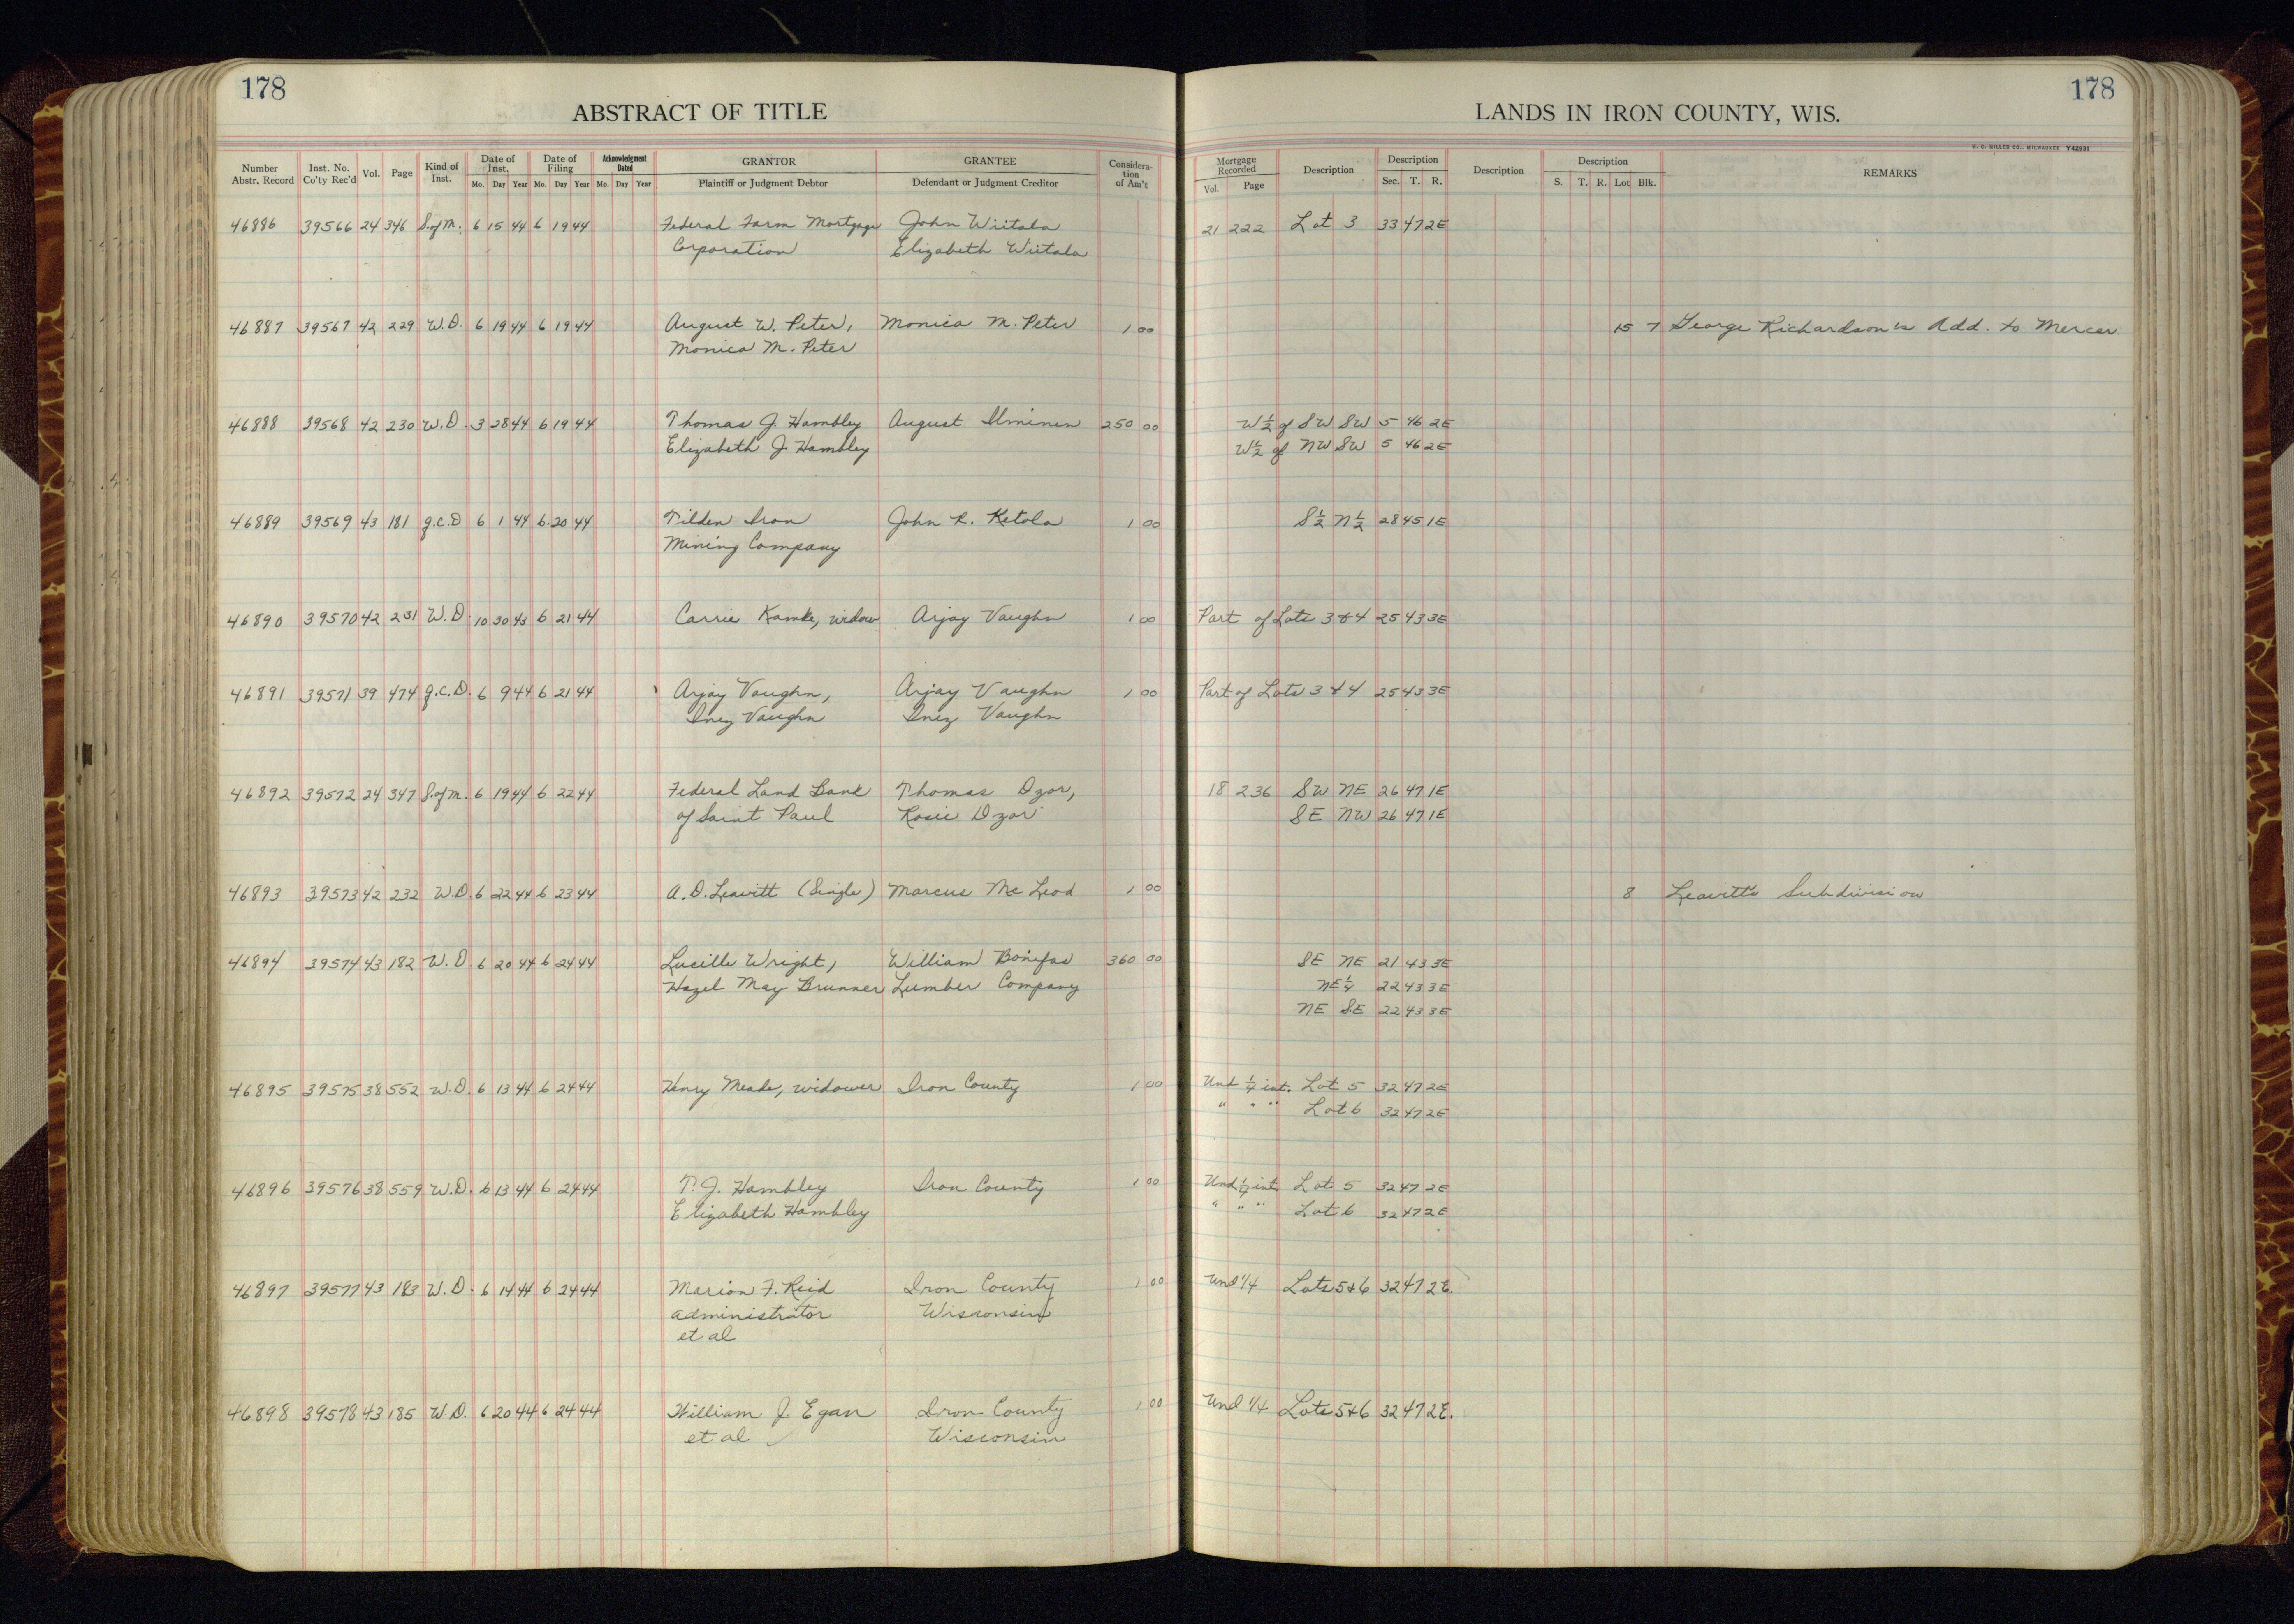 178
178
ABSTRACT OF TITLE
LANDS IN IRON COUNTY, WIS.
H. C. MILLER CO., MILWAUKEE Y42931
Number Abstr. Record Inst. No. Co'ty Rec'd Vol. Page Kind of Inst. Date of Inst. Mo. Day Year Date of Filing Mo. Day Year Acknowledgment Dated Mo. Day Year GRANTOR Plaintiff or Judgment Debtor GRANTEE Defendant or Judgment Creditor Considera-tion of Am't Mortgage Recorded Vol. Page Description Description Sec. T. R. Description Description S. T. R. Lot Blk. REMARKS
46886 39566 24 346 S. of M. 6 15 44 6 19 44 Federal Farm Mortgage John Wiitala 21 222 Lot 3 33 47 2E
Corporation Elizabeth Wiitala
46887 39567 42 229 W.D. 6 19 44 6 19 44 August W. Peter, Monica M. Peter 1 00 15 7 George Richardson's Add. to Mercer
Monica M. Peter
46888 39568 42 230 W.D. 3 28 44 6 19 44 Thomas J. Hambley August Ilminen 250 00 W½ of SW SW 5 46 2E
Elizabeth J. Hambley W½ of NW SW 5 46 2E
46889 39569 43 181 Q.C.D 6 1 44 6 20 44 Tilden Iron John R. Ketola 1 00 S½ N½ 28 45 1E
Mining Company
46890 39570 42 231 W.D. 10 30 43 6 21 44 Carrie Kamke, widow Arjay Vaughn 1 00 Part of Lots 3 & 4 25 43 3E
46891 39571 39 474 Q.C.D. 6 9 44 6 21 44 Arjay Vaughn, Arjay Vaughn 1 00 Part of Lots 3 & 4 25 43 3E
Inez Vaughn Inez Vaughn
46892 39572 24 347 S. of M. 6 19 44 6 22 44 Federal Land Bank Thomas Dzor, 18 236 SW NE 26 47 1E
of Saint Paul Rosie Dzor SE NW 26 47 1E
46893 39573 42 232 W.D. 6 22 44 6 23 44 A. D. Leavitt (Single) Marcus McLeod 1 00 8 Leavitt's Subdivision
46894 39574 43 182 W.D. 6 20 44 6 24 44 Lucille Wright, William Bonifas 360 00 SE NE 21 43 3E
Hazel May Brunner Lumber Company NE¼ 22 43 3E
NE SE 22 43 3E
46895 39575 38 552 W.D. 6 13 44 6 24 44 Henry Meade, widower Iron County 1 00 Und ¼ int. Lot 5 32 47 2E
" " " Lot 6 32 47 2E
46896 39576 38 559 W.D. 6 13 44 6 24 44 T. J. Hambley Iron County 1 00 Und ¼ int. Lot 5 32 47 2E
Elizabeth Hambley " " " Lot 6 32 47 2E
46897 39577 43 183 W.D. 6 14 44 6 24 44 Marion F. Reid Iron County 1 00 Und 1/4 Lots 5 & 6 32 47 2E.
administrator Wisconsin
et al
46898 39578 43 185 W.D. 6 20 44 6 24 44 William J. Egan Iron County 1 00 Und 1/4 Lots 5 & 6 32 47 2E.
et al Wisconsin